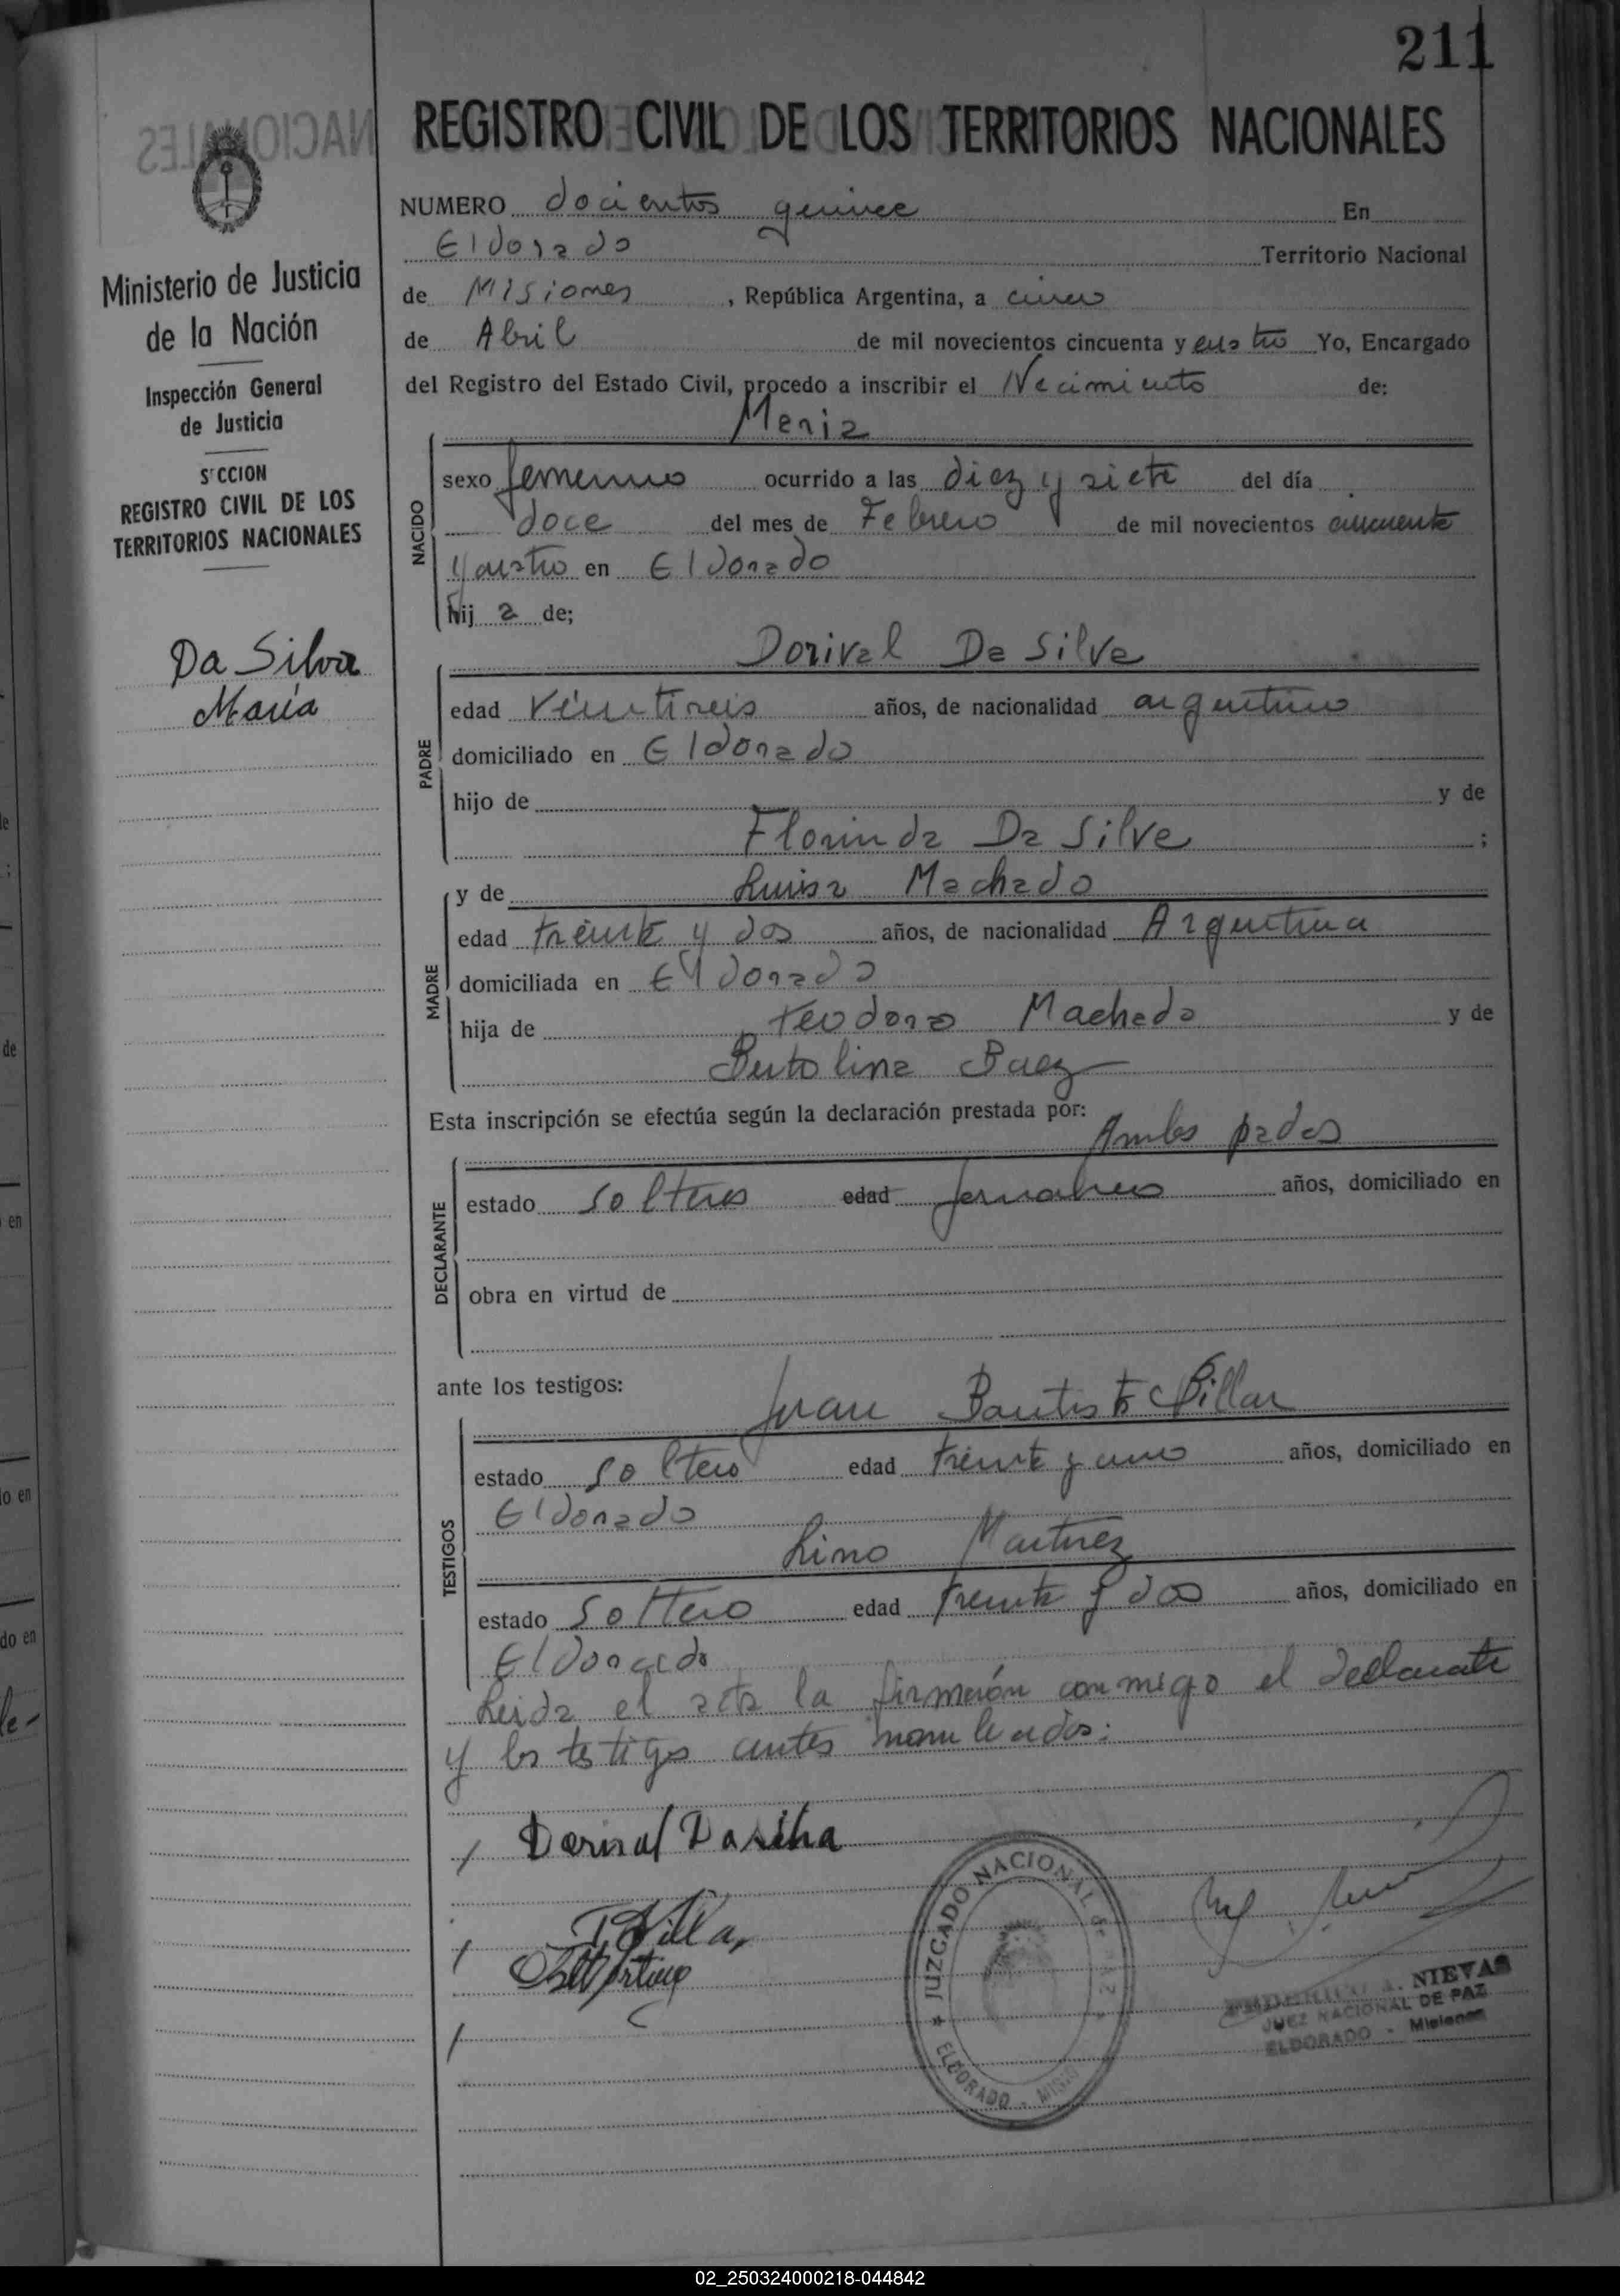 211
REGISTRO CIVIL DE LOS TERRITORIOS NACIONALES
Ministerio de Justicia
de la Nación
Inspección General
de Justicia
SECCION
REGISTRO CIVIL DE LOS
TERRITORIOS NACIONALES
Da Silva
María
NUMERO docientos quince En
Eldorado Territorio Nacional
de Misiones , República Argentina, a cinco
de Abril de mil novecientos cincuenta y cuatro Yo, Encargado
del Registro del Estado Civil, procedo a inscribir el Necimiento de:
Maria
NACIDO
sexo femenino ocurrido a las diez y siete del día
doce del mes de Febrero de mil novecientos cincuenta
y cuatro en Eldorado
hij a de;
Dorival Da Silva
PADRE
edad veintiseis años, de nacionalidad argentino
domiciliado en Eldorado
hijo de y de
Florinda Da Silva ;
MADRE
y de Luisa Machado
edad treinta y dos años, de nacionalidad Argentina
domiciliada en Eldorado
hija de Teodoro Machado y de
Bertolina Baez
Esta inscripción se efectúa según la declaración prestada por:
Ambos padres
DECLARANTE
estado solteros edad jornalero años, domiciliado en
obra en virtud de
ante los testigos:
Juan Bautista Villar
TESTIGOS
estado soltero edad treinta y uno años, domiciliado en
Eldorado
Lino Martinez
estado soltero edad treinta y dos años, domiciliado en
Eldorado
Leida el acta la firmarón conmigo el declarante
y los testigos antes nombrados:
Dorival Dasilva
JUZGADO NACIONAL DE PAZ
ELDORADO - MISIO
NIEVAS
JUEZ NACIONAL DE PAZ
ELDORADO - Misiones
02_250324000218-044842